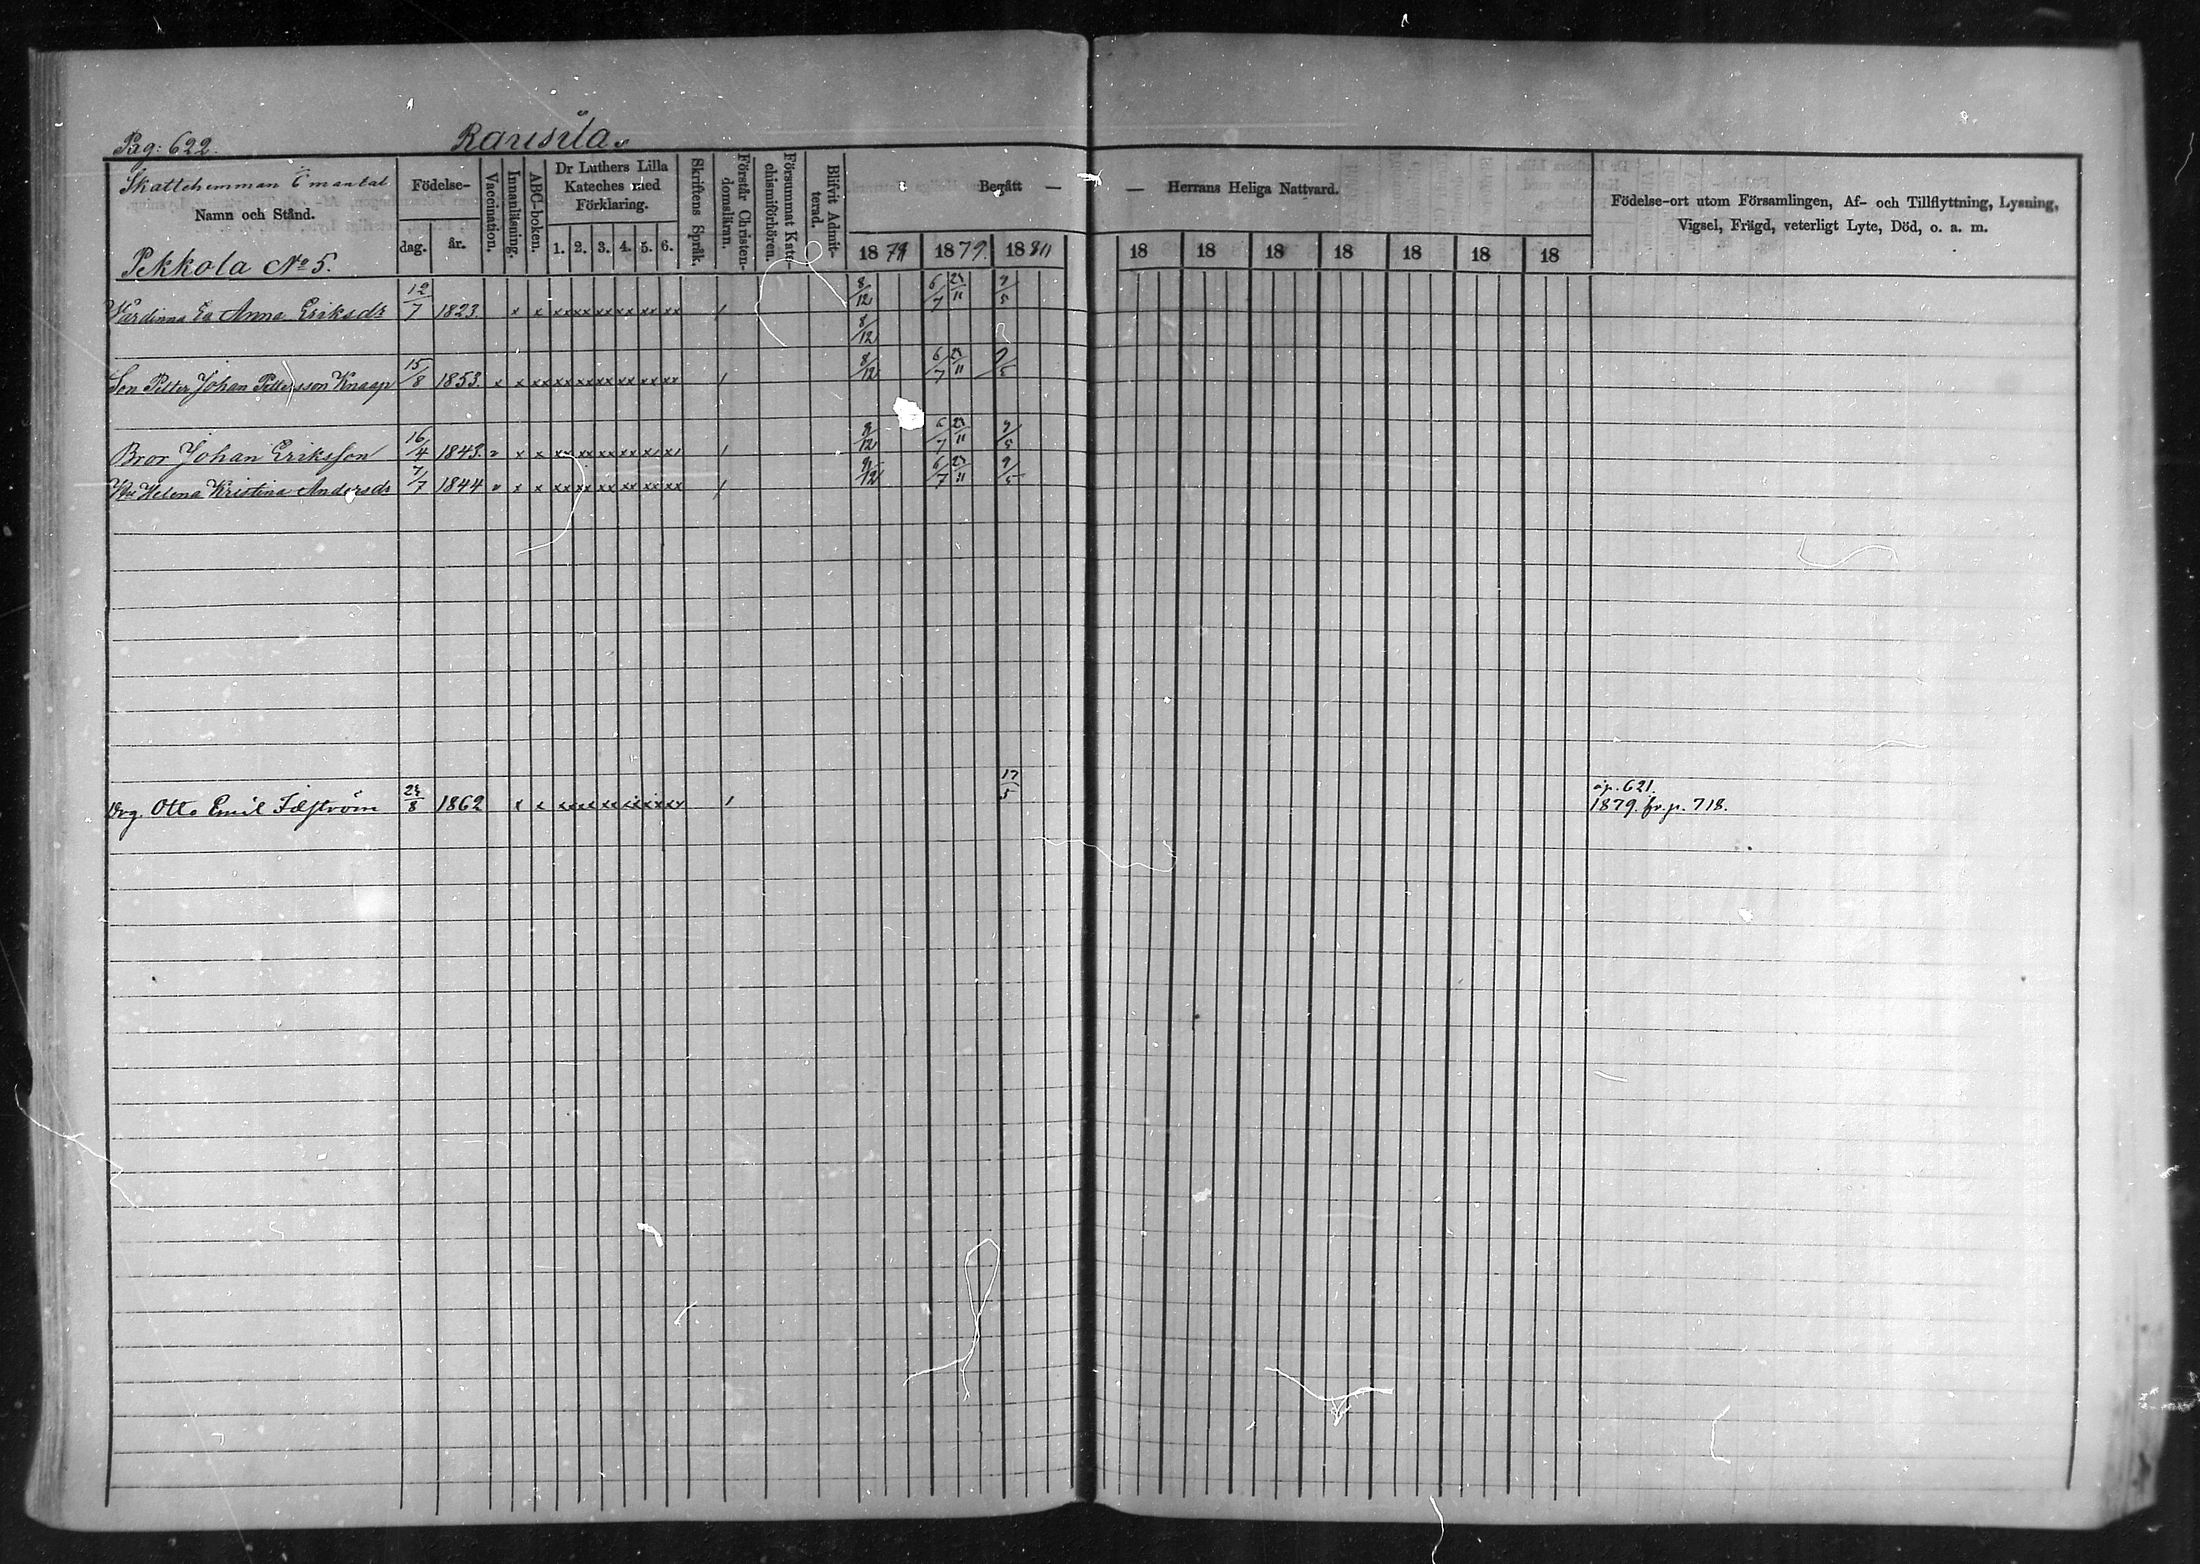 Pag: 622. Rausila.
Skattehemman mantal
Namn och Stånd.
Pekkola No 5.
Födelse-
dag. år.
Vaccination.
Innanläsning.
ABC-boken.
Dr Luthers Lilla
Kateches med
Förklaring.
1. 2. 3. 4. 5. 6.
Skriftens Språk.
Förstår Christen-
domsläran.
Försummat Kate-
chismiförhören.
Blifvit Admit-
terad.
Begått — — Herrans Heliga Nattvard.
18 79. 18 18 18 18 18 18 18 18
Födelse-ort utom Församlingen, Af- och Tillflyttning, Lysning,
Vigsel, Frägd, veterligt Lyte, Död, o. a. m.
Värdinna Ea Anna Eriksdr 12/7 1823. x x xx xx xx xx xx xx / 8/12 6/7 23/11 9/5
8/12
Son Petter Johan Pettersson Knaap 15/8 1853. x x xx xx xx xx xx xx xx / 8/12 6/7 23/11 9/5
Bror Johan Eriksson 16/4 1843. v x x xx xx xx xx xx / 9/12 6/7 23/11 9/5
Hu Helena Kristina Andersdr 7/7 1844 v x x xx xx xx xx xx xx / 9/12 6/7 23/11 9/5
Drg. Otto Emil 1862 x x xx xx xx xx xx xx / 17/5 åp. 621.
1879. fr. p. 718.